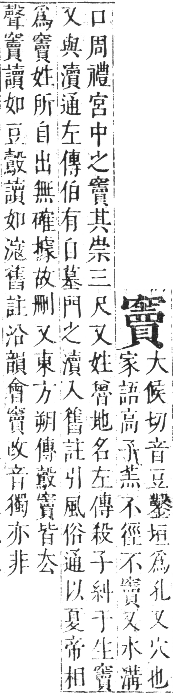 竇
大候切音豆鑿垣爲孔又穴也
家語高子羔不徑不竇又水溝
口周禮宮中之竇其崇三尺又姓魯地名左傳殺子糾于生竇
又與瀆通左傳伯有自墓門之瀆入舊註引風俗通以夏帝相
爲竇姓所自出無確據故刪又東方朔傳鷇竇皆去
聲竇讀如豆鷇讀如滱舊註沿韻會竇改音獨亦非